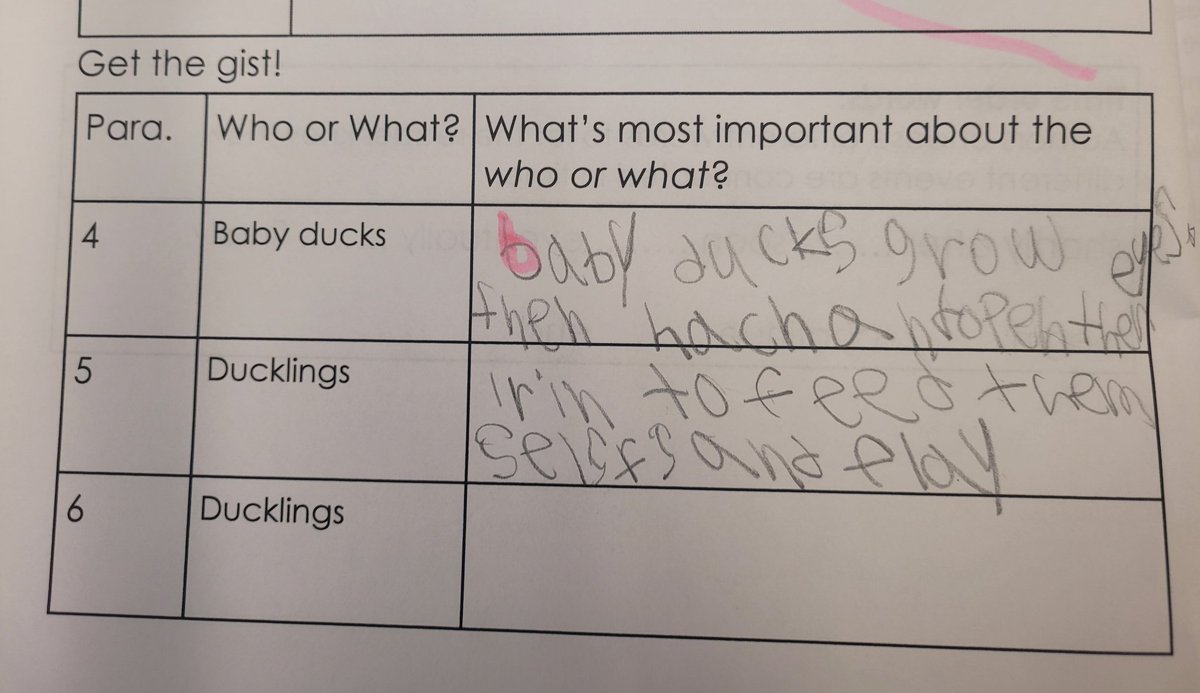 Get the gist!
Para. Who or What? What's most important about the
who or what?
4 Baby ducks baby ducks grow eyes
then hach antopen then
5 Ducklings lrin to feed them
selsfs and play
6 Ducklings